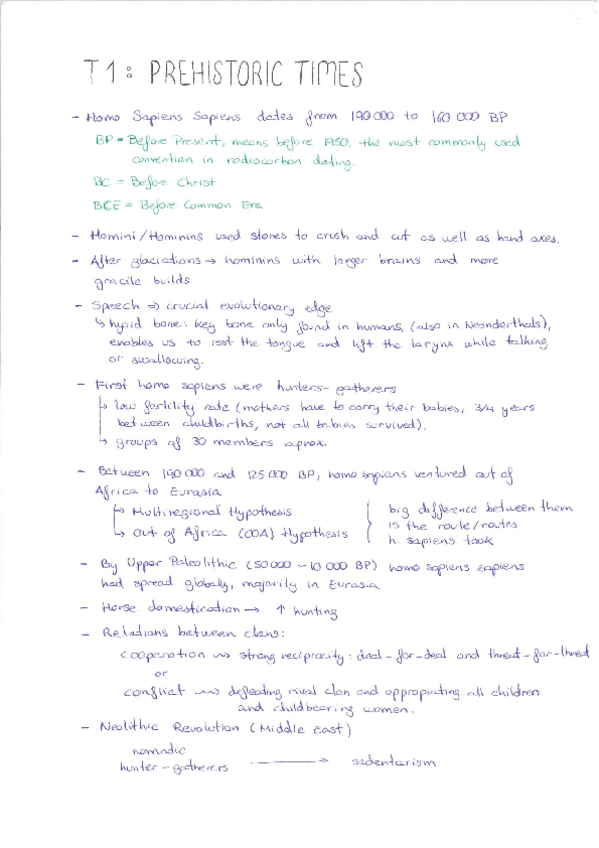 T1: PREHISTORIC TIMES
- Homo Sapiens Sapiens dates from 190 000 to 160 000 BP
BP = Before Present, means before 1950. the most commonly used
convention in radiocarbon dating.
BC = Before Christ
BCE = Before Common Era
- Homini/Hominins used stones to crush and cut as well as hand axes.
- After glaciations → hominins with larger brains and more
gracile builds
- Speech ⇒ crucial evolutionary edge
↳ hyoid bone: key bone only found in humans, (also in Neanderthals),
enables us to rest the tongue and lift the larynx while talking
or swallowing.
- First homo sapiens were hunters-gatherers
↳ low fertility rate (mothers have to carry their babies, 3/4 years
between childbirths, not all babies survived).
↳ groups of 30 members aprox.
- Between 190 000 and 125 000 BP, homo sapiens ventured out of
Africa to Eurasia
↳ Multiregional Hypothesis
↳ Out of Africa (OOA) Hypothesis
big difference between them
is the route/routes
h. sapiens took
- By Upper Paleolithic (50 000 - 10 000 BP) homo sapiens sapiens
had spread globally, majority in Eurasia
- Horse domestication → ↑ hunting
- Relations between clans:
cooperation ⇝ strong reciprocity: deal-for-deal and threat-for-threat
or
conflict ⇝ defeating rival clan and appropiating all children
and childbearing women.
- Neolithic Revolution (Middle East)
nomadic
hunter-gatherers → sedentarism